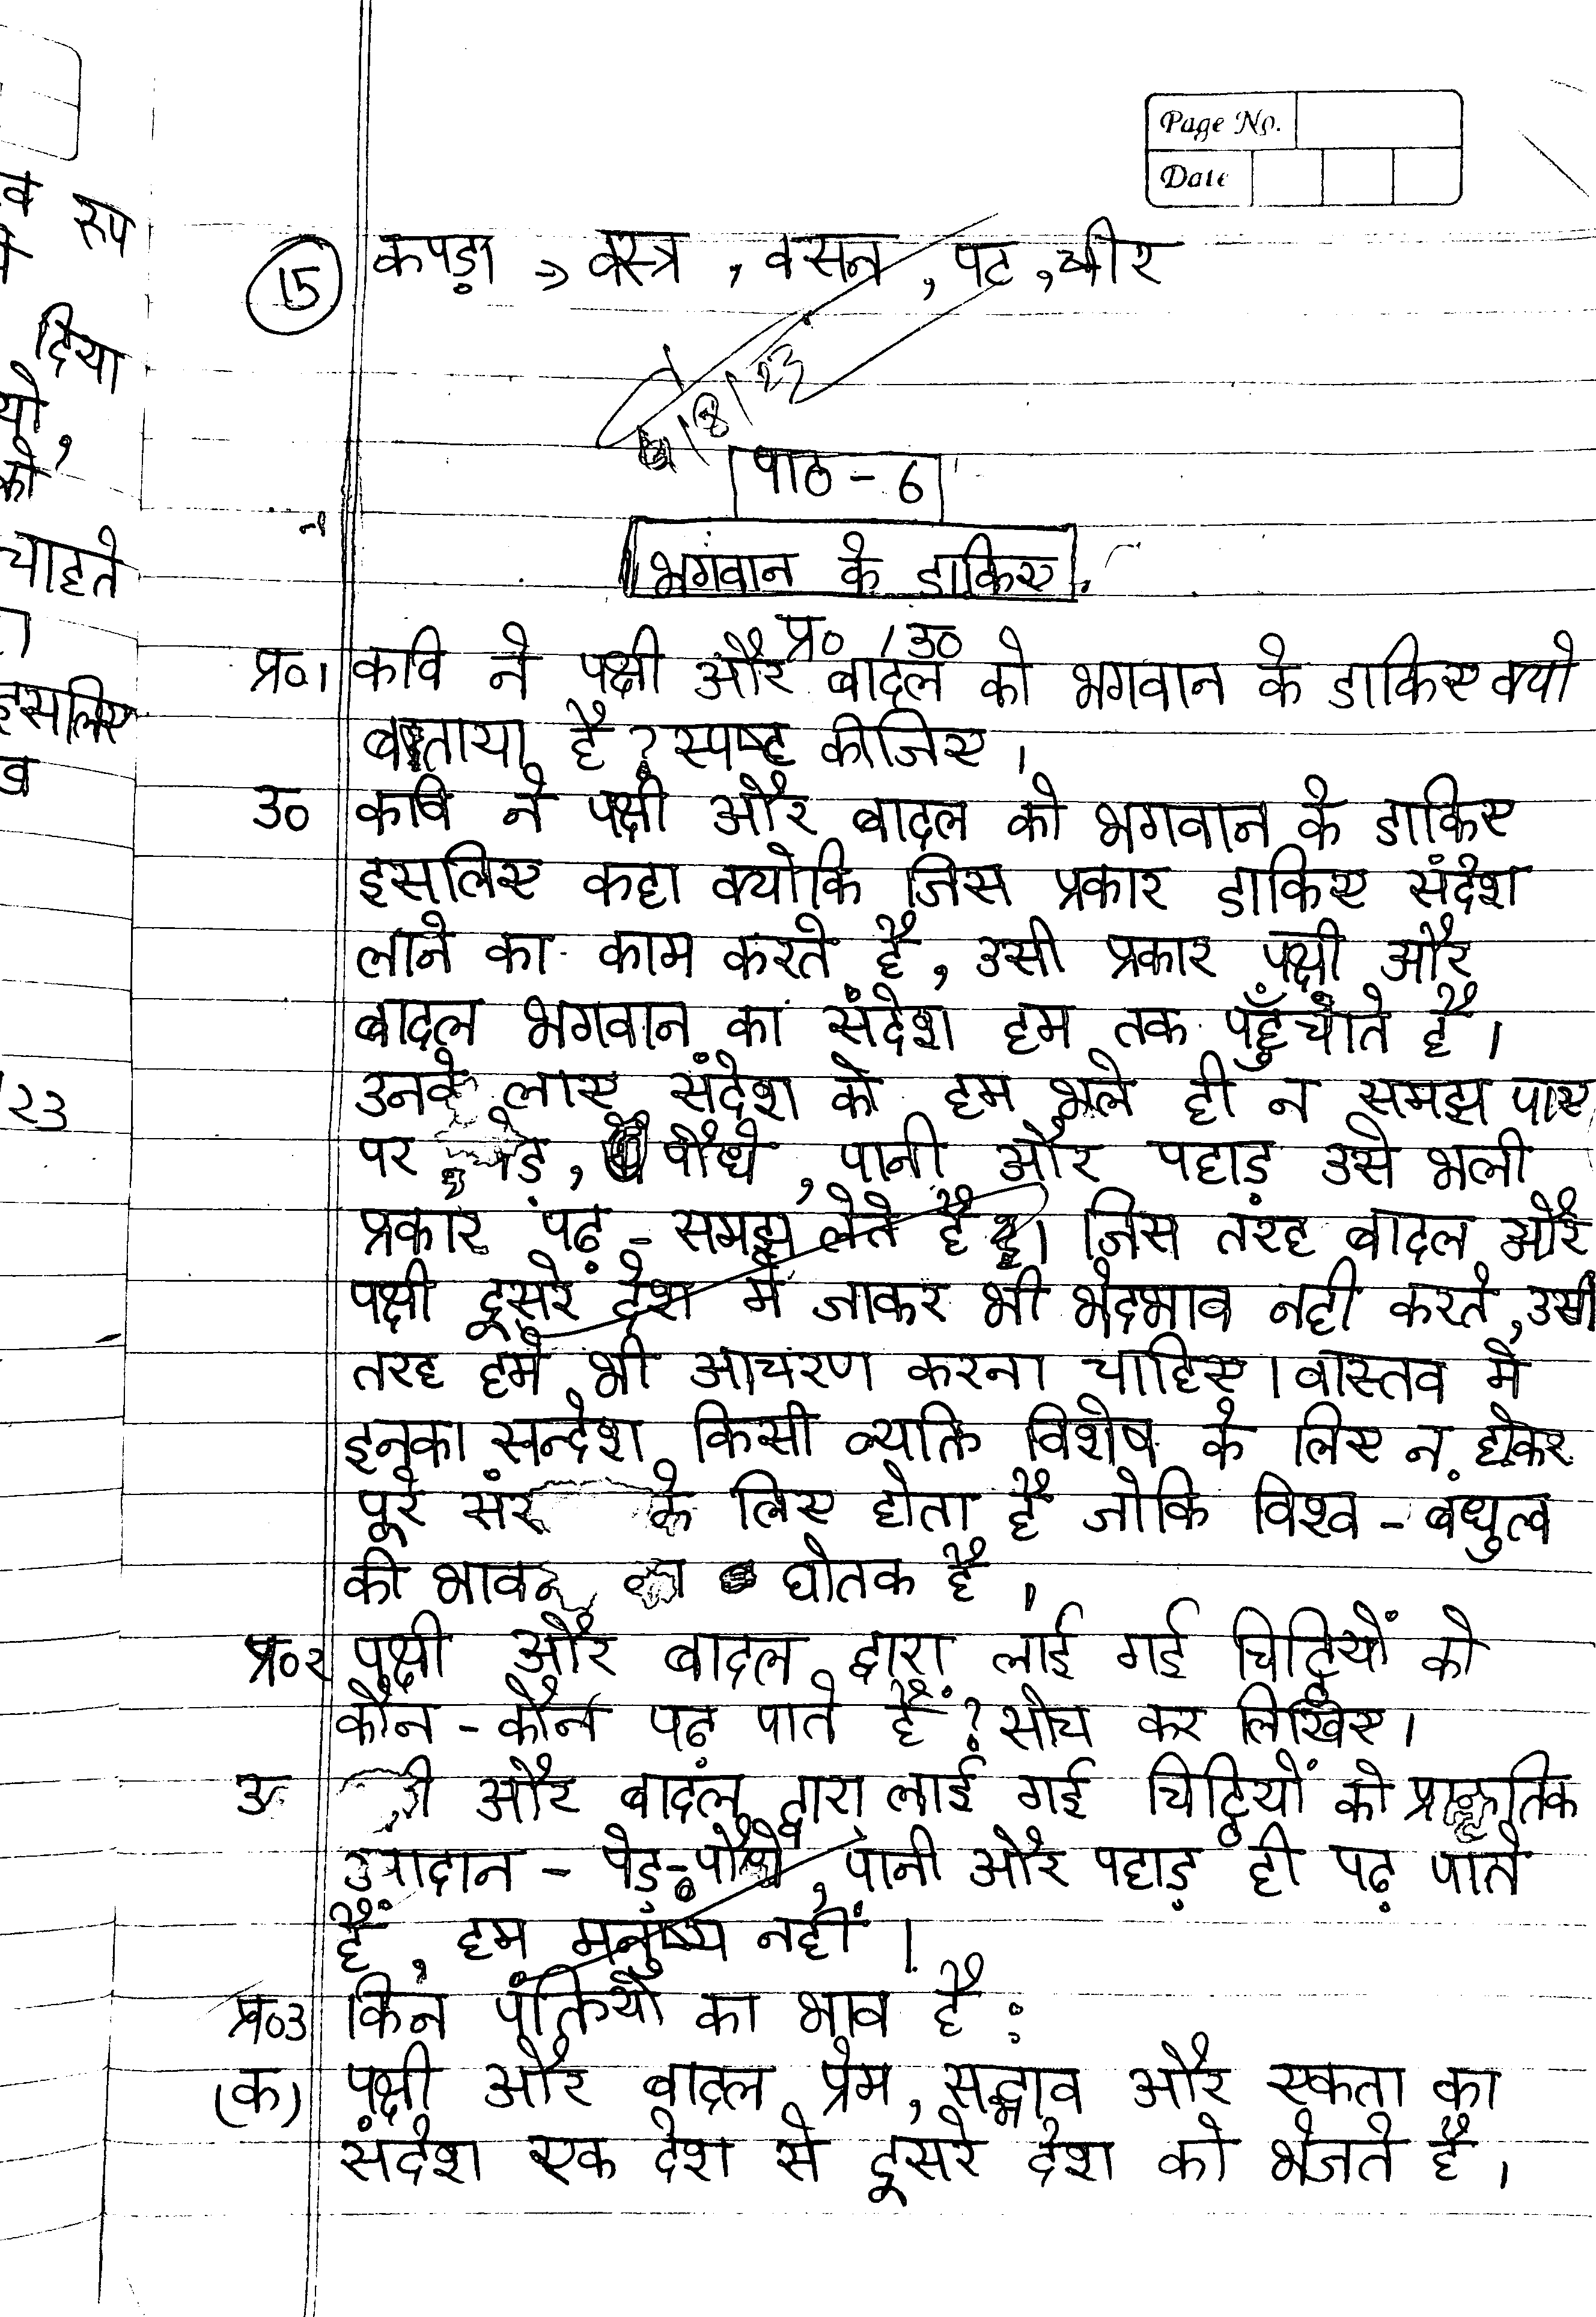 Page No.
Date
व रूप
दिया
यो,
को
चाहते
इसलिए
व
23
(15) कपड़ा => वस्त्र, वसन, पट, चीर
8/23
पाठ - 6
भगवान के डाकिए
प्र० / उ०
प्र०1 कवि ने पक्षी और बादल को भगवान के डाकिए क्यो
बताया है? स्पष्ट कीजिए।
उ० कवि ने पक्षी और बादल को भगवान के डाकिए
इसलिए कहा क्योकि जिस प्रकार डाकिए संदेश
लाने का काम करते है, उसी प्रकार पक्षी और
बादल भगवान का संदेश हम तक पहुँचाते है।
उनके लाए संदेश को हम भले ही न समझ पाए
पर पेड़, पौधे, पानी और पहाड़ उसे भली
प्रकार पढ़ - समझ लेते है। जिस तरह बादल और
पक्षी दूसरे देश मे जाकर भी भेदभाव नही करते, उसी
तरह हमे भी आचरण करना चाहिए। वास्तव मे
इनका सन्देश किसी व्यक्ति विशेष के लिए न होकर
पूरे के लिए होता है जोकि विश्व - बंधुत्व
की का घोतक है।
प्र०2 पक्षी और बादल द्वारा लाई गई चिट्ठियों को
कौन - कौन पढ़ पाते हैं? सोच कर लिखिए।
उ और बादल द्वारा लाई गई चिट्ठियों को प्राकृतिक
उपादान - पेड़-पौधे, पानी और पहाड़ ही पढ़ पाते
हैं, हम मनुष्य नहीं।
प्र०3 किन पंक्तियों का भाव है:
(क) पक्षी और बादल प्रेम, सद्भाव और एकता का
संदेश एक देश से दूसरे देश को भेजते है।